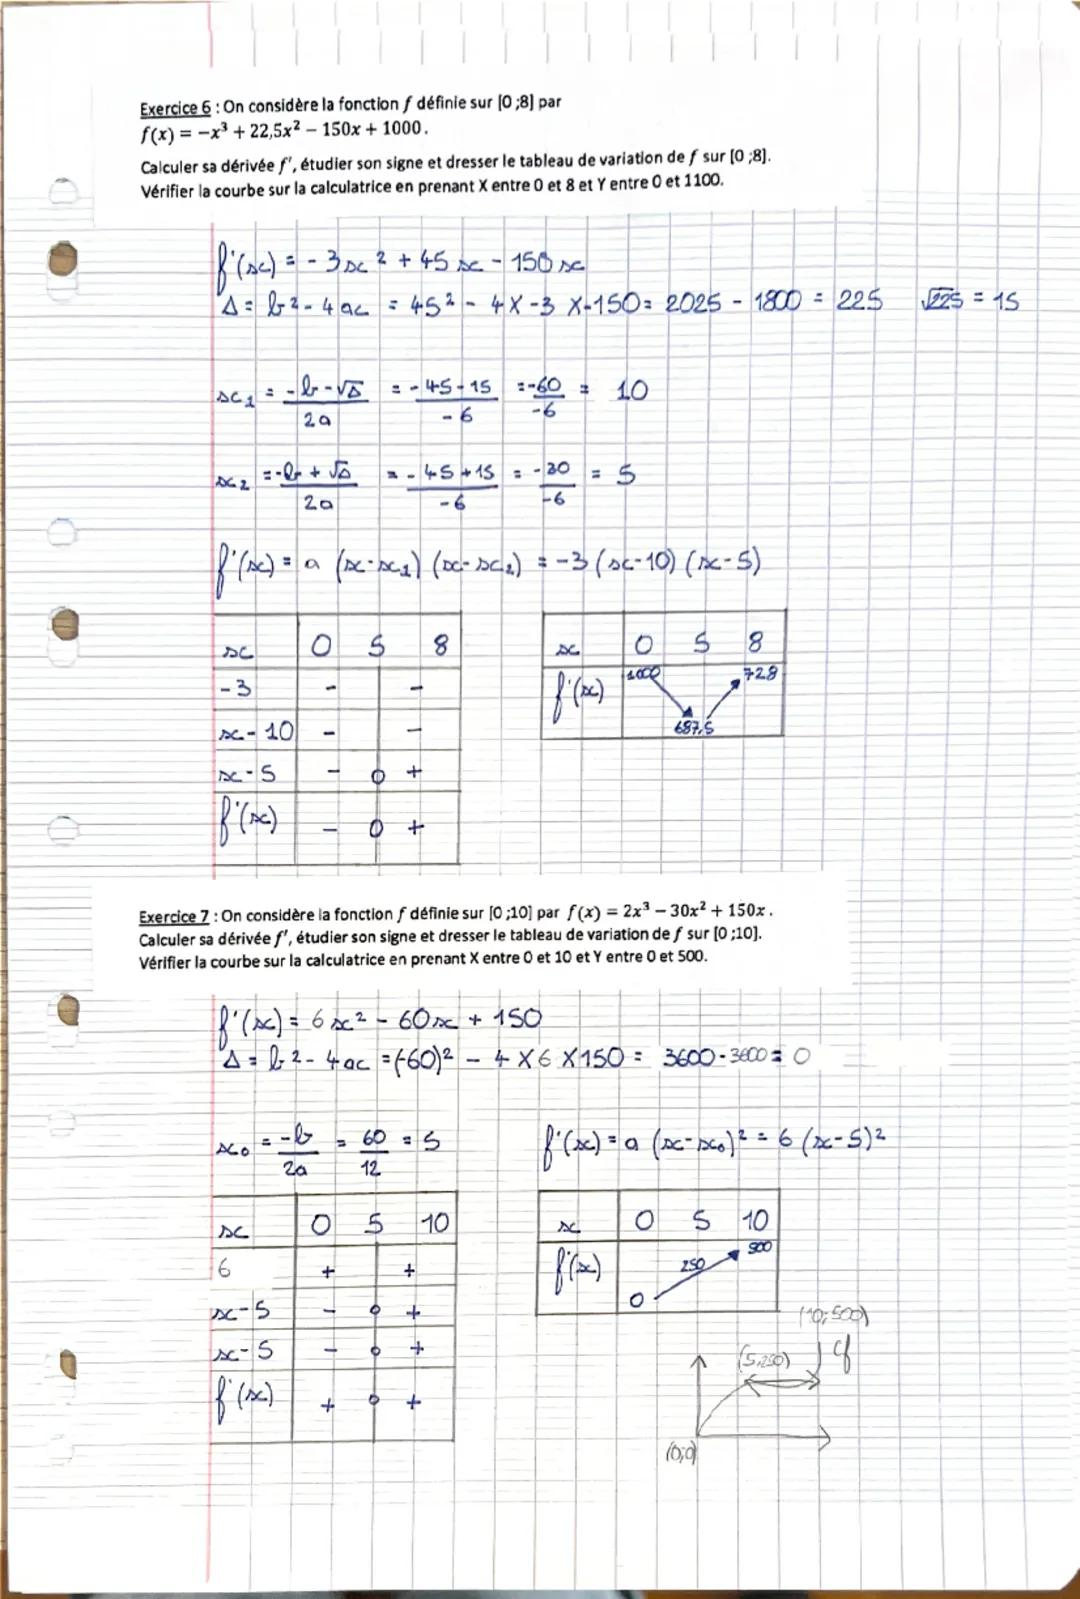 Exercice 6 : On considère la fonction f définie sur [0 ;8] par
f(x) = −x³ + 22,5x² − 150x + 1000.
Calculer sa dérivée f', étudier son signe et dresser le tableau de variation de f sur [0 ;8].
Vérifier la courbe sur la calculatrice en prenant X entre 0 et 8 et Y entre 0 et 1100.
f'(x) = - 3x² + 45x - 150x
Δ = b² - 4ac = 45² - 4 x -3 x -150 = 2025 - 1800 = 225 √225 = 15
x₁ = -b-√Δ / 2a = -45-15 / -6 = -60 / -6 = 10
x₂ = -b+√Δ / 2a = -45+15 / -6 = -30 / -6 = 5
f'(x) = a (x-x₁) (x-x₂) = -3 (x-10) (x-5)
x 0 5 8
-3 - -
x-10 - -
x-5 - 0 +
f'(x) - 0 +
x 0 5 8
f'(x) 1000 687,5 728
Exercice 7 : On considère la fonction f définie sur [0 ;10] par f(x) = 2x³ − 30x² + 150x.
Calculer sa dérivée f', étudier son signe et dresser le tableau de variation de f sur [0 ;10].
Vérifier la courbe sur la calculatrice en prenant X entre 0 et 10 et Y entre 0 et 500.
f'(x) = 6x² - 60x + 150
Δ = b² - 4ac = (-60)² - 4 x 6 x 150 = 3600 - 3600 = 0
x₀ = -b / 2a = 60 / 12 = 5 f'(x) = a (x-x₀)² = 6 (x-5)²
x 0 5 10
6 + +
x-5 - 0 +
x-5 - 0 +
f'(x) + 0 +
x 0 5 10
f'(x) 0 250 500
(10;500)
(5,250)
(0;0)